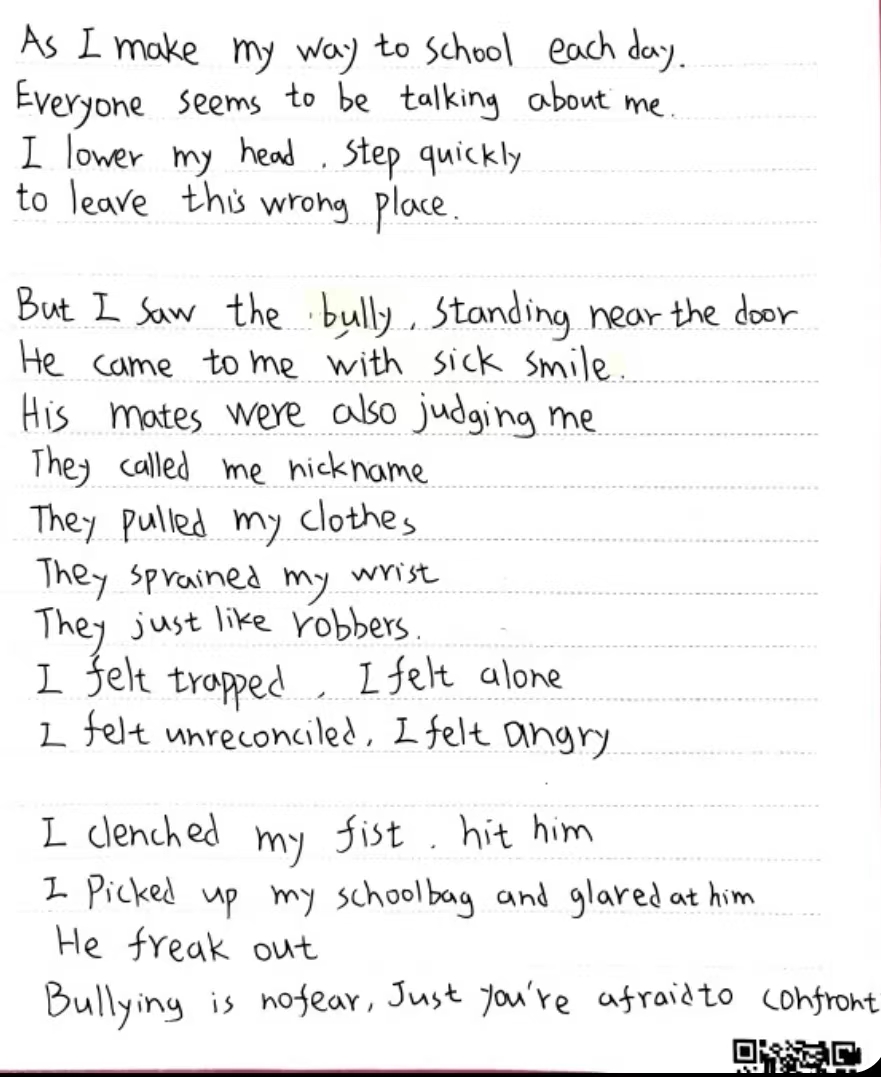 As I make my way to school each day.
Everyone seems to be talking about me.
I lower my head , step quickly
to leave this wrong place.
But I saw the bully , standing near the door
He came to me with sick smile.
His mates were also judging me
They called me nickname
They pulled my clothes
They sprained my wrist
They just like robbers.
I felt trapped , I felt alone
I felt unreconciled, I felt angry
I clenched my fist . hit him
I Picked up my schoolbag and glared at him
He freak out
Bullying is nofear, Just you're afraid to confront